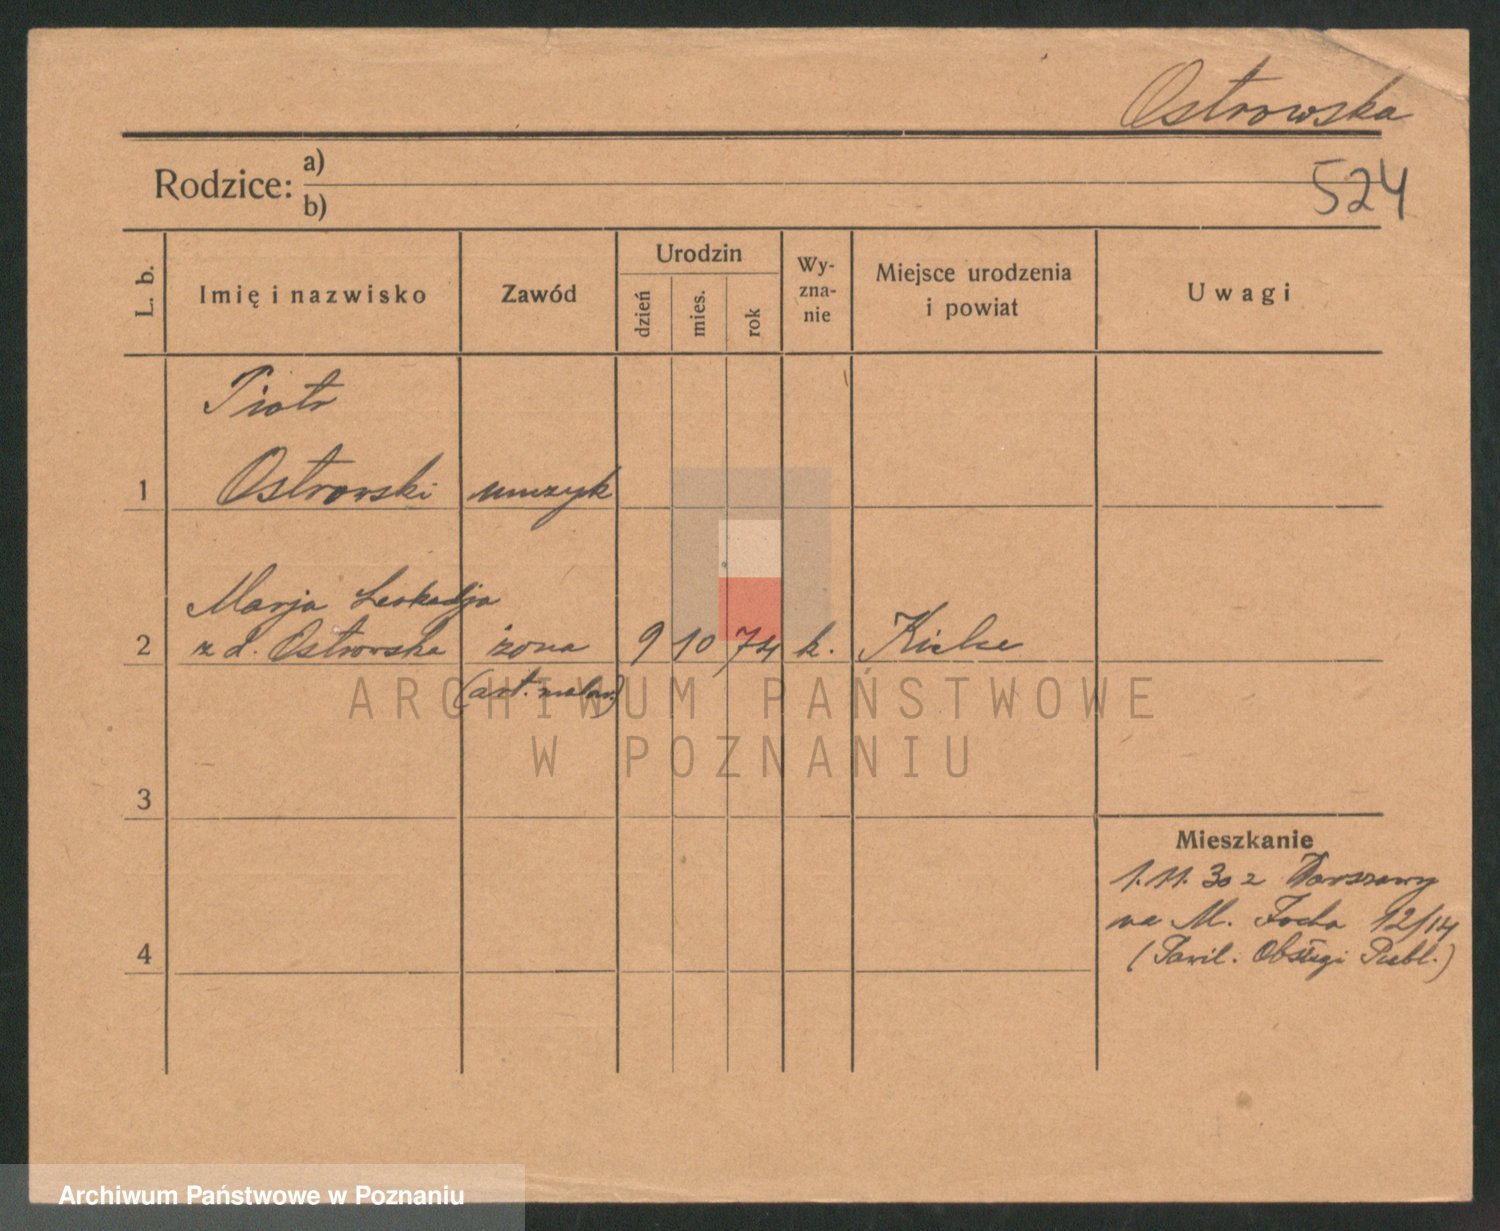 Ostrowska
Rodzice: a)
b)
524
L. b.
Imię i nazwisko
Zawód
Urodzin
dzień
mies.
rok
Wy-
zna-
nie
Miejsce urodzenia
i powiat
Uwagi
Piotr
1 Ostrowski muzyk
Marja Leokadja
2 z d. Ostrowska żona 9 10 74 k. Kielce
(art. malar.)
ARCHIWUM PAŃSTWOWE
W POZNANIU
3
Mieszkanie
1.11.30 z Warszawy
na M. Focha 12/14
4 (Pawil. Obsługi Publ.)
Archiwum Państwowe w Poznaniu